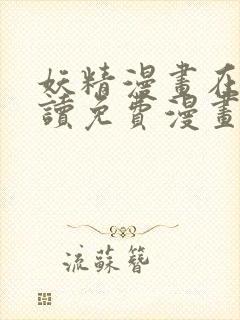 妖精漫畫在
讀免費漫畫
流蘇簪